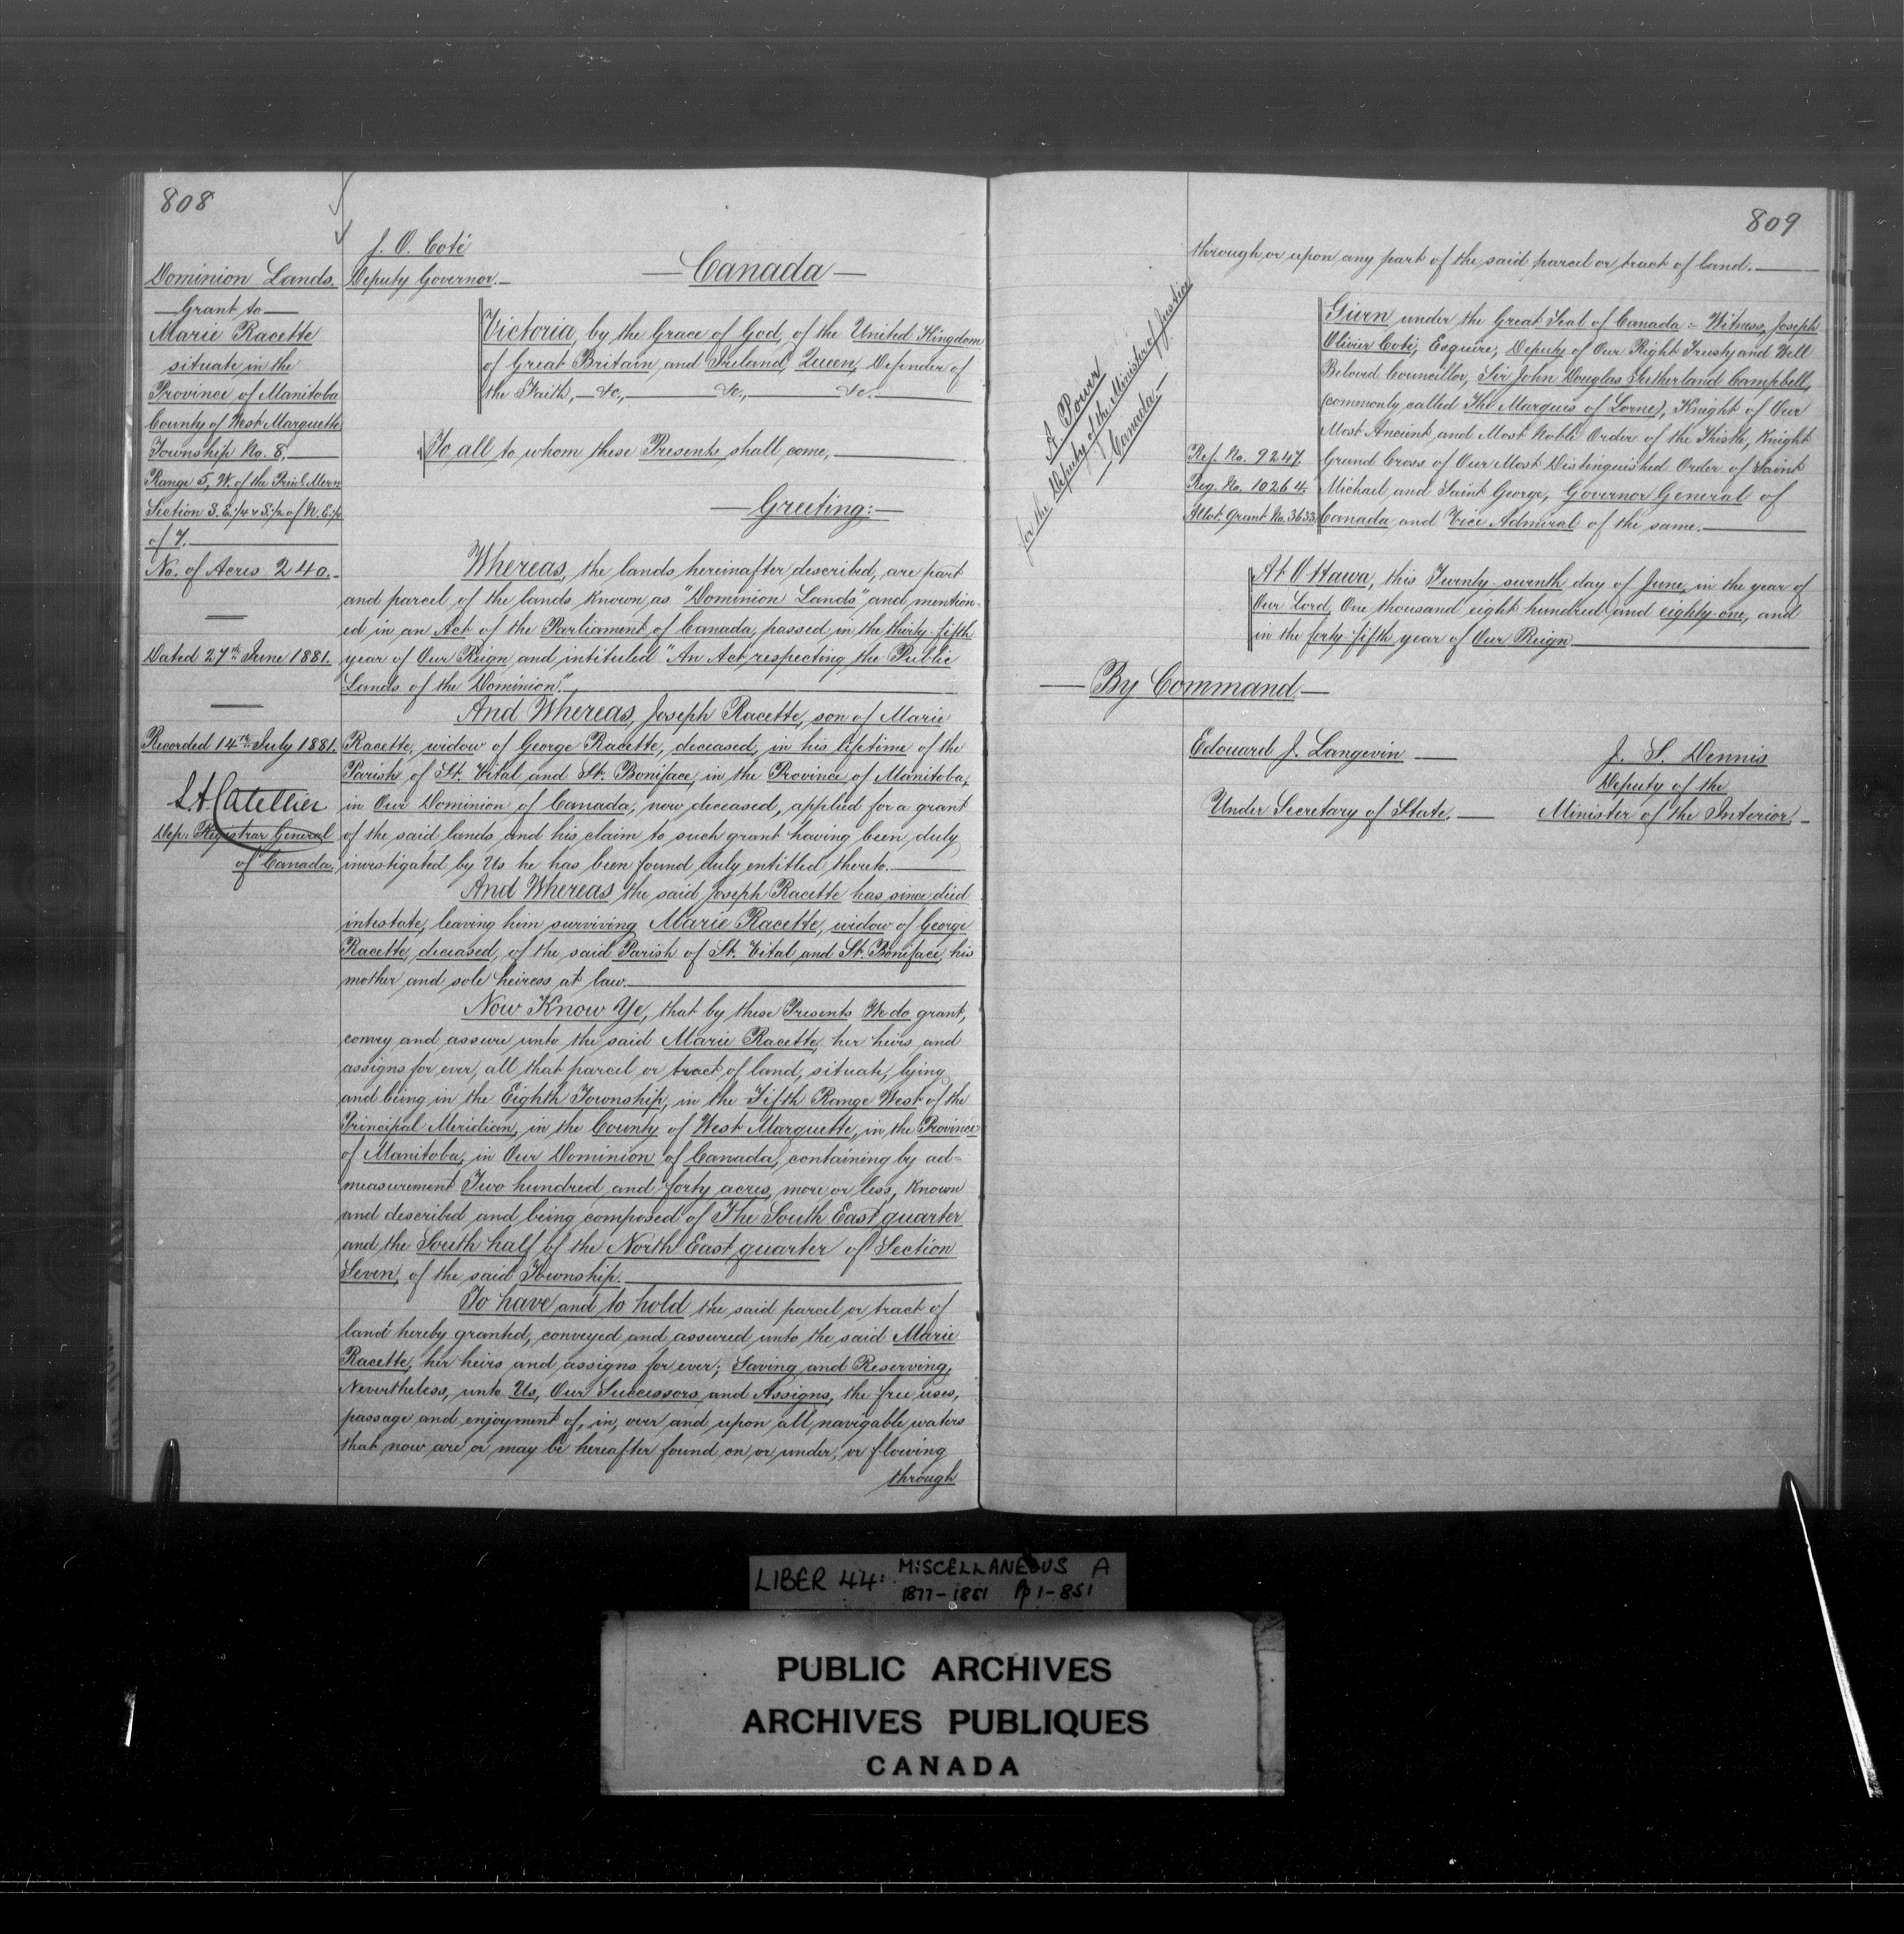 808
Dominion Lands.
Grant to
Marie Racette
situate in the
Province of Manitoba
County of West Marquette
Township No. 8,
Range 5, W. of the Prin'l Mern
Section S.E. 1/4 & S. 1/2 of N.E. 1/4
of 7.
No. of Acres 240.
Dated 27th June 1881.
Recorded 14th July 1881.
L. A. Catellier
Dep. Registrar General
of Canada.
J. O. Coté
Deputy Governor.
— Canada —
Victoria, by the Grace of God, of the United Kingdom
of Great Britain and Ireland, Queen, Defender of
the Faith, — &c, — &c., — &c. —
To all to whom these Presents shall come, —
— Greeting: —
Whereas, the lands hereinafter described, are part
and parcel of the lands known as "Dominion Lands" and mention-
ed in an Act of the Parliament of Canada, passed in the thirty-fifth
year of Our Reign and intituled "An Act respecting the Public
Lands of the Dominion".
And Whereas, Joseph Racette, son of Marie
Racette, widow of George Racette, deceased, in his lifetime of the
Parish of St. Vital and St. Boniface, in the Province of Manitoba,
in Our Dominion of Canada, now deceased, applied for a grant
of the said lands and his claim to such grant having been duly
investigated by Us he has been found duly entitled thereto. —
And Whereas the said Joseph Racette has since died
intestate, leaving him surviving Marie Racette, widow of George
Racette, deceased, of the said Parish of St. Vital and St. Boniface, his
mother and sole heiress at law. —
Now Know Ye, that by these Presents We do grant,
convey and assure unto the said Marie Racette, her heirs and
assigns for ever, all that parcel or tract of land, situate, lying
and being in the Eighth Township, in the Fifth Range West of the
Principal Meridian, in the County of West Marquette, in the Province
of Manitoba, in Our Dominion of Canada, containing by ad=
measurement Two hundred and forty acres, more or less, known
and described and being composed of The South East quarter
and the South half of the North East quarter of Section
Seven, of the said Township. —
To have and to hold the said parcel or tract of
land hereby granted, conveyed and assured unto the said Marie
Racette, her heirs and assigns for ever; Saving and Reserving,
Nevertheless, unto Us, Our Successors and Assigns, the free uses,
passage and enjoyment of, in, over and upon all navigable waters
that now are or may be hereafter found on or under, or flowing
through
809
through or upon any part of the said parcel or tract of land. —
A. Power
for the Deputy of the Minister of Justice
— Canada. —
Ref. No. 9247.
Reg. No. 10264.
Allot. Grant No. 3633.
Given under the Great Seal of Canada :- Witness, Joseph
Olivier Coté, Esquire, Deputy of Our Right Trusty and Well
Beloved Councillor, Sir John Douglas Sutherland Campbell,
(commonly called The Marquis of Lorne), Knight of Our
Most Ancient and Most Noble Order of the Thistle, Knight
Grand Cross of Our Most Distinguished Order of Saint
Michael and Saint George, Governor General of
Canada and Vice Admiral of the same. —
At Ottawa, this Twenty-seventh day of June, in the year of
Our Lord, One thousand eight hundred and eighty-one, and
in the forty-fifth year of Our Reign —
— By Command —
Edouard J. Langevin —
Under Secretary of State. —
J. S. Dennis
Deputy of the
Minister of the Interior. —
LIBER 44: MISCELLANEOUS A
1877-1881 Pp 1-851
PUBLIC ARCHIVES
ARCHIVES PUBLIQUES
CANADA